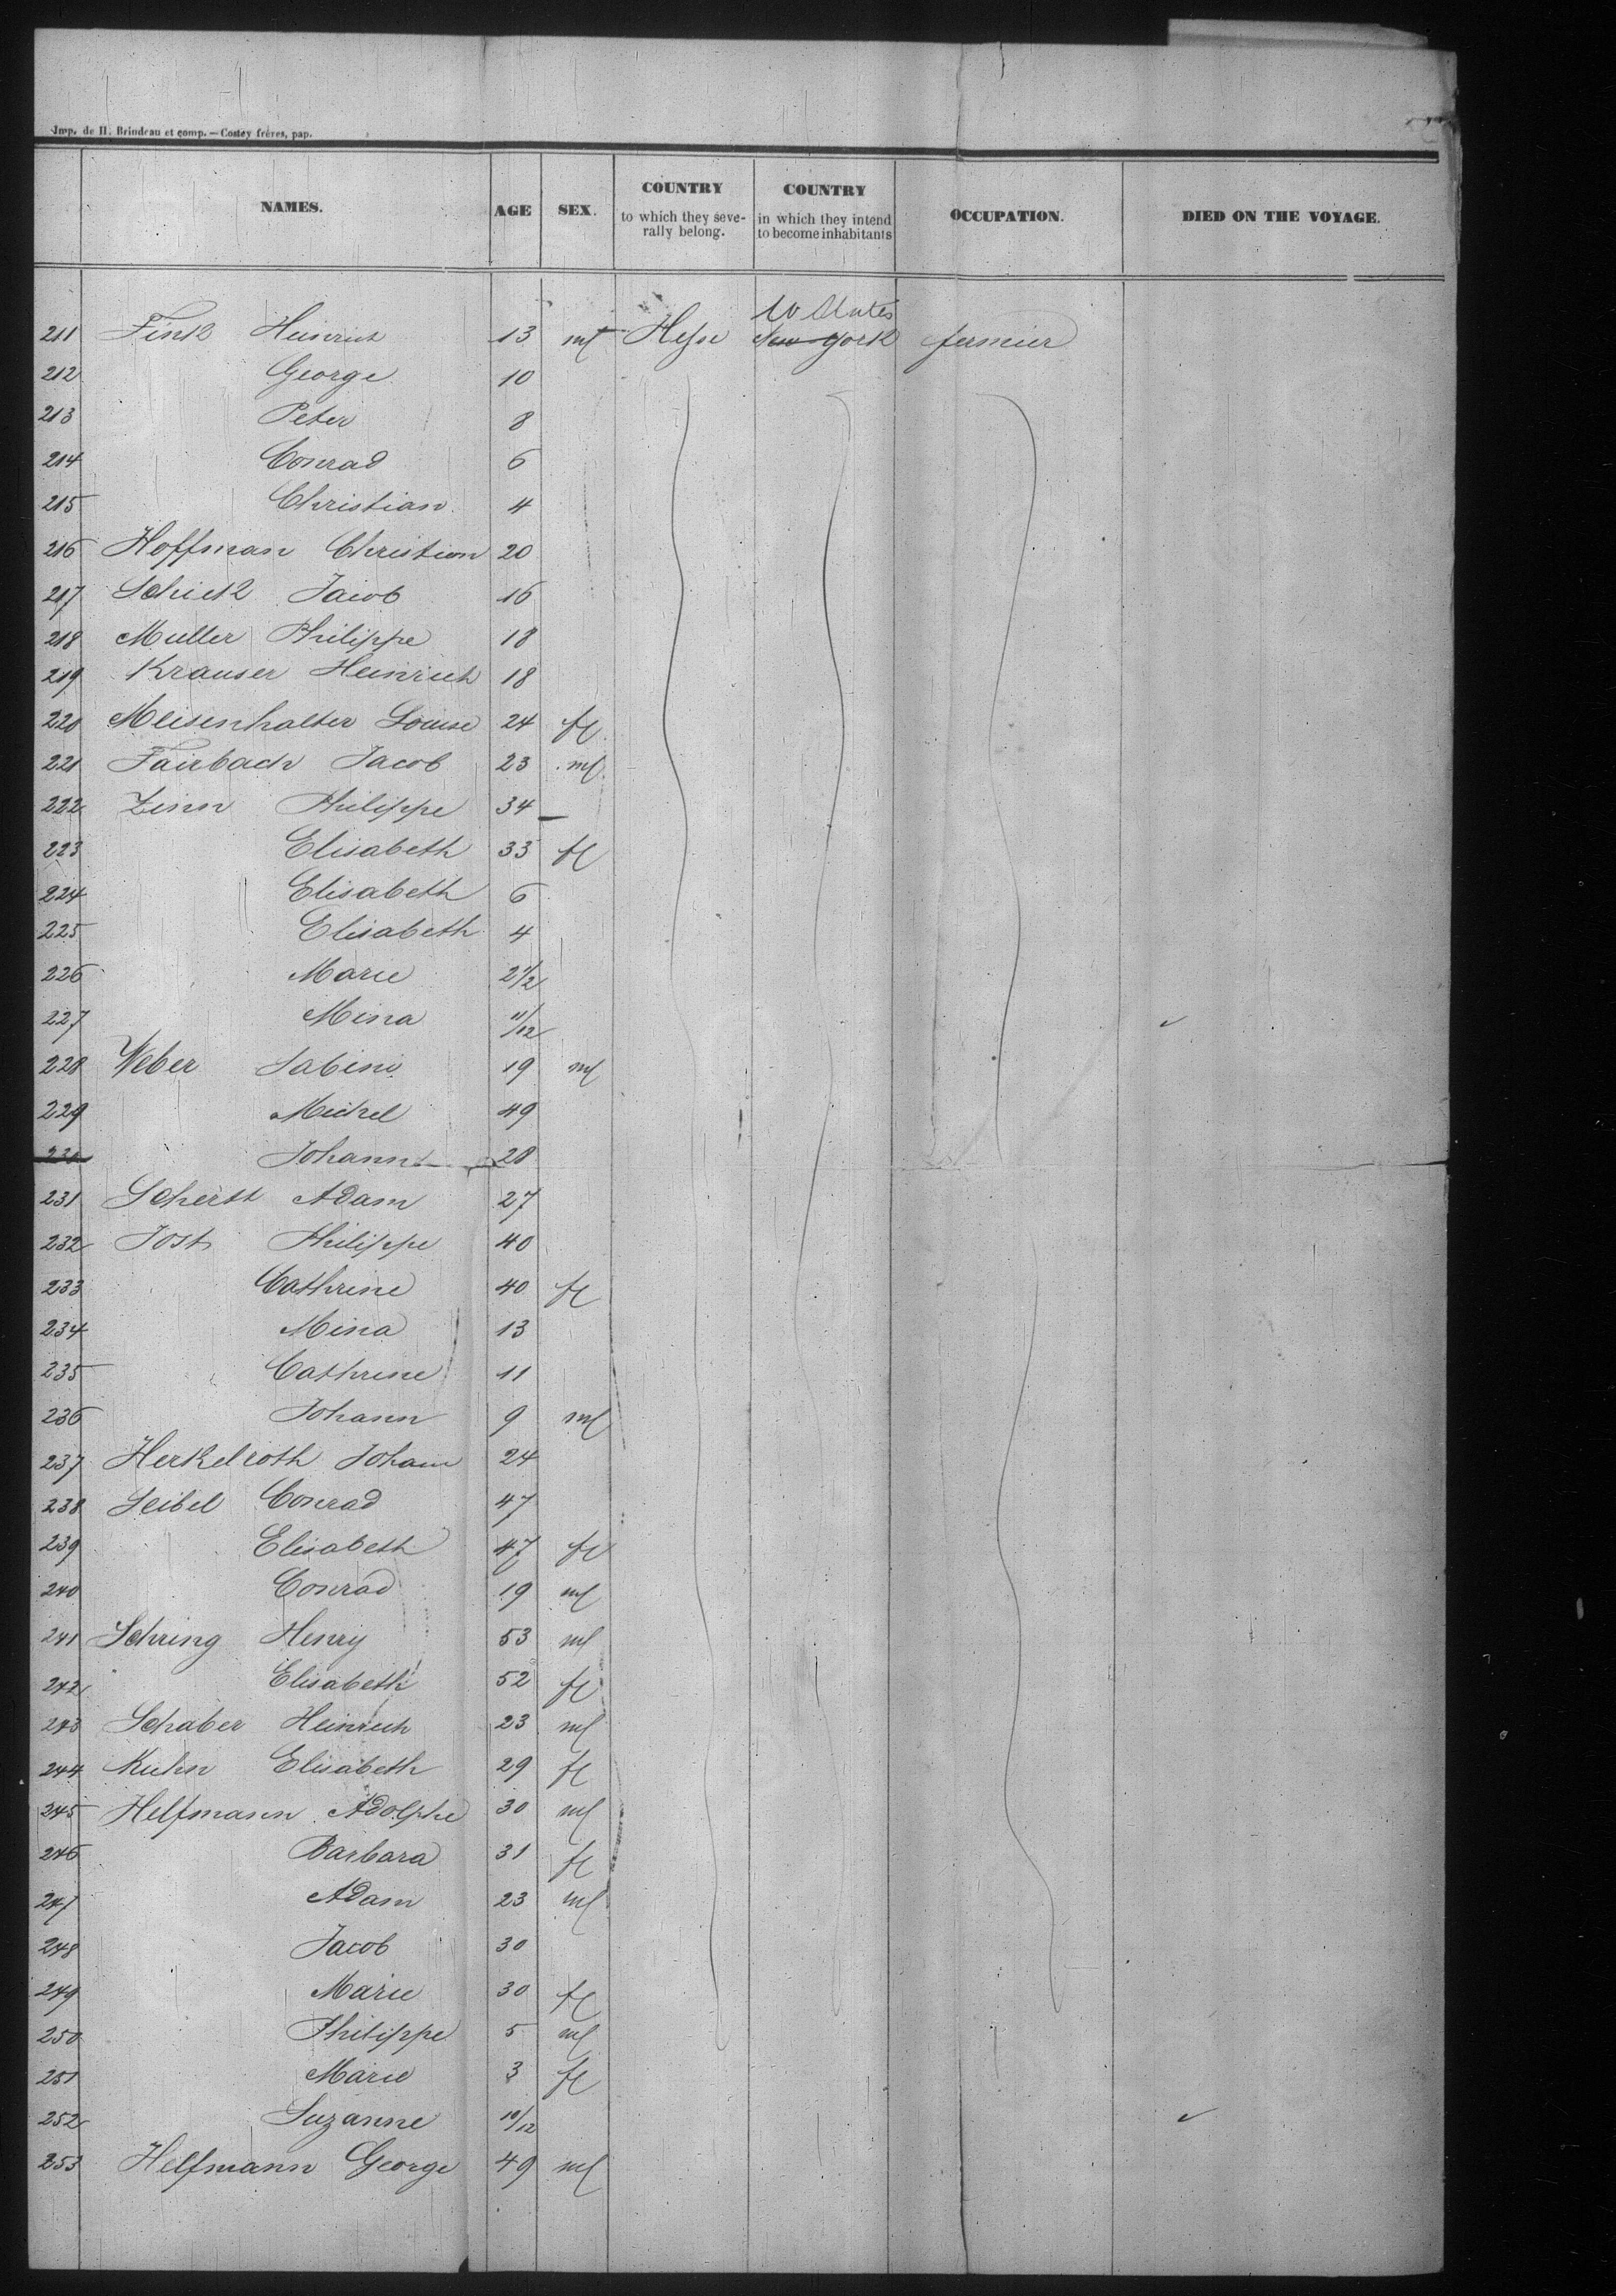 Imp. de H. Brindeau et comp. — Costey frères, pap.
NAMES. AGE SEX. COUNTRY to which they seve-rally belong. COUNTRY in which they intend to become inhabitants OCCUPATION. DIED ON THE VOYAGE.
U States
211 Fink Heinrich 13 ml Hesse New York fermier
212 George 10
213 Peter 8
214 Conrad 6
215 Christian 4
216 Hoffman Christian 20
217 Schick Jacob 16
218 Muller Philippe 18
219 Krauser Heinrich 18
220 Meisenhalter Louise 24 fl
221 Fairbach Jacob 23 ml
222 Zinn Philippe 34 —
223 Elisabeth 33 fl
224 Elisabeth 6
225 Elisabeth 4
226 Marie 2 1/2
227 Mina 11/12 ✓
228 Weber Sabine 19 ml
229 Michel 49
230 Johann 28
231 Adam 27
232 Jost Philippe 40
233 Cathrine 40 fl
234 Mina 13
235 Cathrine 11
236 Johann 9 ml
237 Herkelroth Johann 24
238 Seibel Conrad 47
239 Elisabeth 47 fl
240 Conrad 19 ml
241 Schring Henry 53 ml
242 Elisabeth 52 fl
243 Schaber Heinrich 23 ml
244 Kuhn Elisabeth 29 fl
245 Helfmann Adolphe 30 ml
246 Barbara 31 fl
247 Adam 23 ml
248 Jacob 30
249 Marie 30 fl
250 Philippe 5 ml
251 Marie 3 fl
252 Suzanne 10/12 ✓
253 Helfmann George 49 ml